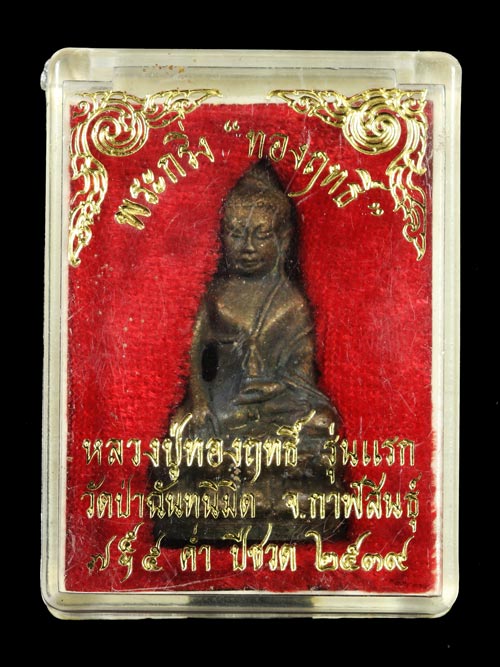 พระกริ่ง "ทองฤทธิ์"
หลวงปู่ทองฤทธิ์ รุ่นแรก
วัดป่าฉันทนิมิต จ.กาฬสินธุ์
๗ ฯ ๕ ค่ำ ปีชวด ๒๕๓๙